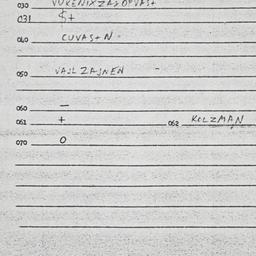 030
031 $+
040 CUVAS+N
050 VAJLZAJNEN -
060 —
061 + 062 KOLZMAN
070 0